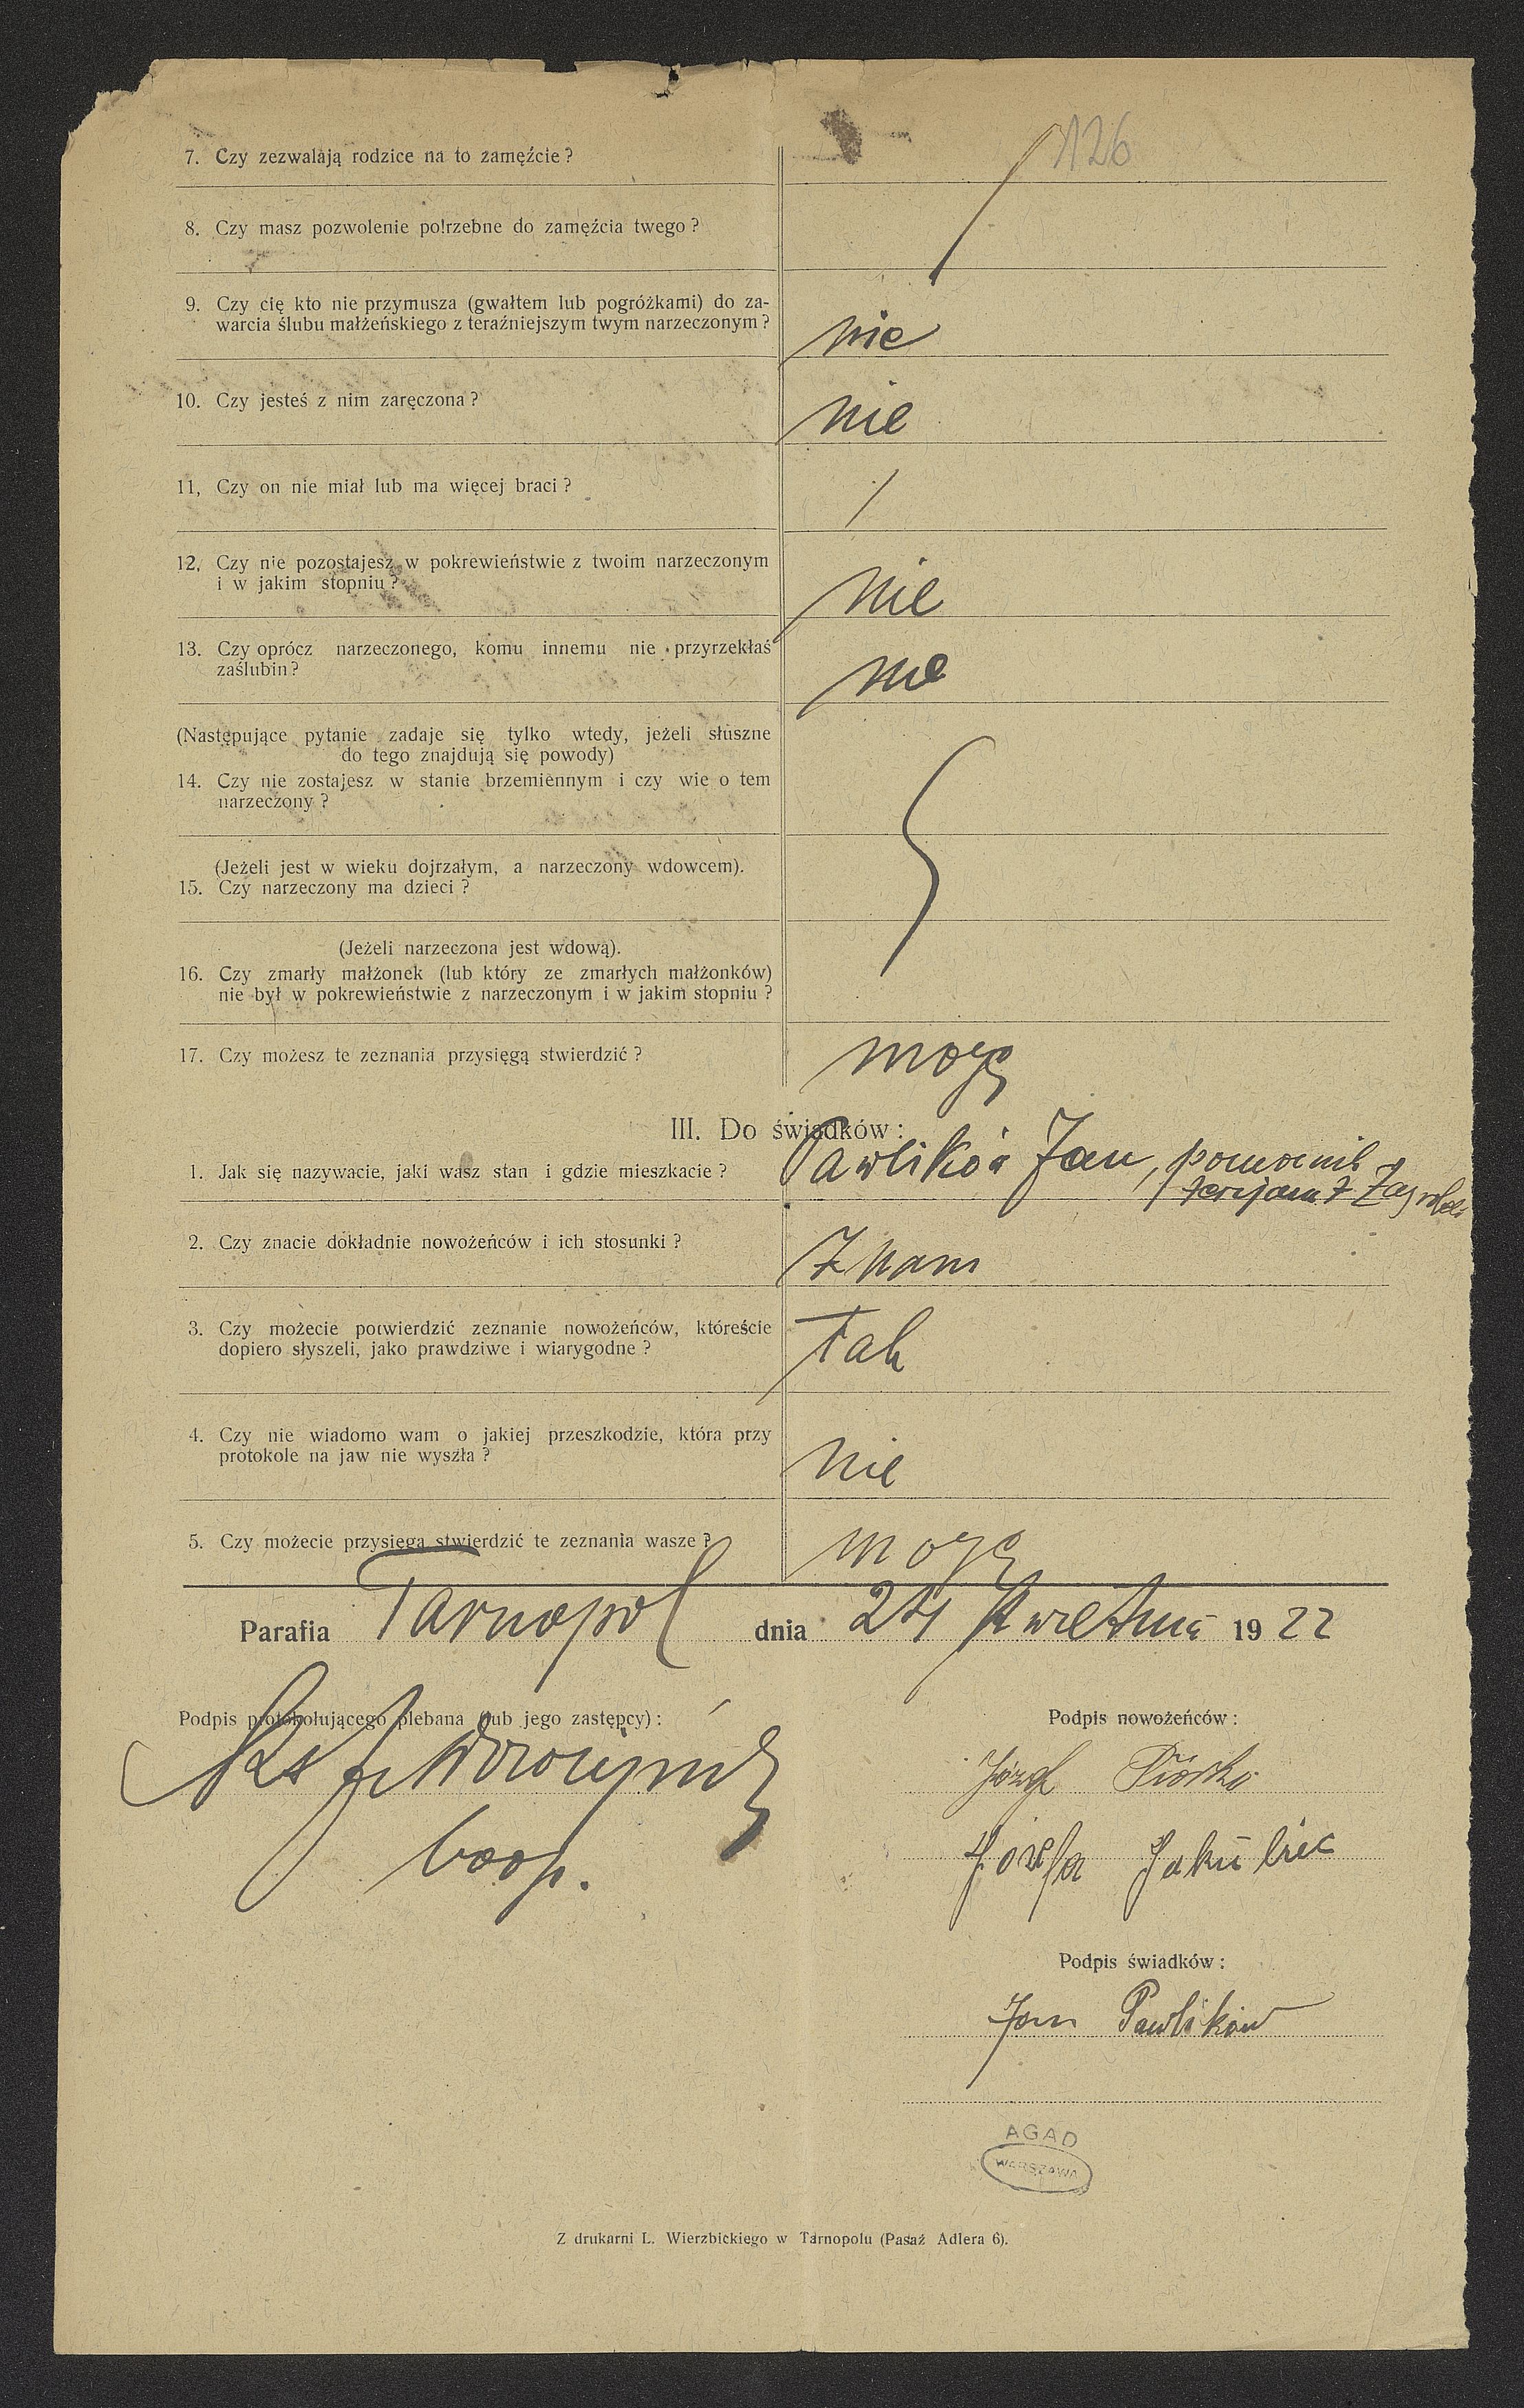 126
7. Czy zezwalają rodzice na to zamęźcie ?
8. Czy masz pozwolenie potrzebne do zamęźcia twego ?
9. Czy cię kto nie przymusza (gwałtem lub pogróżkami) do za-
warcia ślubu małżeńskiego z teraźniejszym twym narzeczonym ?
nie
10. Czy jesteś z nim zaręczona ?
nie
11, Czy on nie miał lub ma więcej braci ?
12. Czy nie pozostajesz w pokrewieństwie z twoim narzeczonym
i w jakim stopniu ?
nie
13. Czy oprócz narzeczonego, komu innemu nie przyrzekłaś
zaślubin ?
nie
(Następujące pytanie zadaje się tylko wtedy, jeżeli słuszne
do tego znajdują się powody)
14. Czy nie zostajesz w stanie brzemiennym i czy wie o tem
narzeczony ?
(Jeżeli jest w wieku dojrzałym, a narzeczony wdowcem).
15. Czy narzeczony ma dzieci ?
(Jeżeli narzeczona jest wdową).
16. Czy zmarły małżonek (lub który ze zmarłych małżonków)
nie był w pokrewieństwie z narzeczonym i w jakim stopniu ?
17. Czy możesz te zeznania przysięgą stwierdzić ?
mogę
III. Do świadków :
1. Jak się nazywacie, jaki wasz stan i gdzie mieszkacie ?
Pawlików Jan,
2. Czy znacie dokładnie nowożeńców i ich stosunki ?
Znam
3. Czy możecie potwierdzić zeznanie nowożeńców, któreście
dopiero słyszeli, jako prawdziwe i wiarygodne ?
Tak
4. Czy nie wiadomo wam o jakiej przeszkodzie, która przy
protokole na jaw nie wyszła ?
nie
5. Czy możecie przysięgą stwierdzić te zeznania wasze ?
mogę
Parafia Tarnopol dnia 24 kwietnia 1922
Podpis protokołującego plebana (lub jego zastępcy) :
Ks
coop.
Podpis nowożeńców :
Józef
Józefa Jakubiec
Podpis świadków :
Jan Pawlików
AGAD
WARSZAWA
Z drukarni L. Wierzbickiego w Tarnopolu (Pasaż Adlera 6).